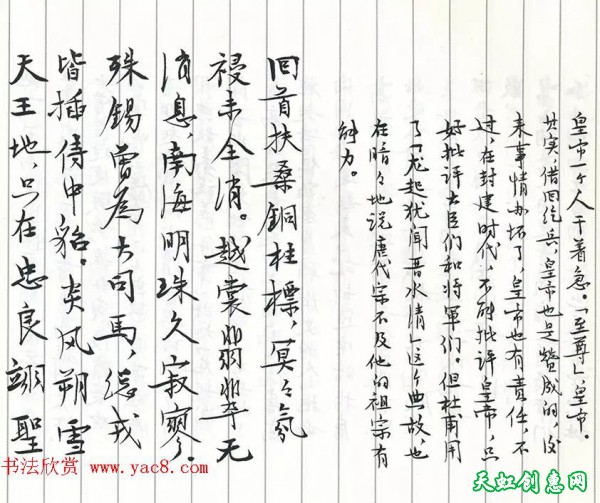 皇帝一个人干着急。「至尊」皇帝。
其实,借回纥兵,皇帝也是赞成的,后
来事情办坏了,皇帝也有责任,不
过,在封建时代,不能批评皇帝,只
好批评大臣们和将军们。但杜甫用
了「龙起犹闻晋水清」这个典故,也
在暗々地说唐代宗不及他的祖宗有
能力。
回首扶桑銅柱標,冥々氛
祲未全消。越裳翡翠无
消息,南海明珠久寂寥。
殊錫曾為大司馬,總戎
皆插侍中貂。炎风朔雪
天王地,只在忠良翊聖
书法欣赏 www.yac8.com
天虹创意网